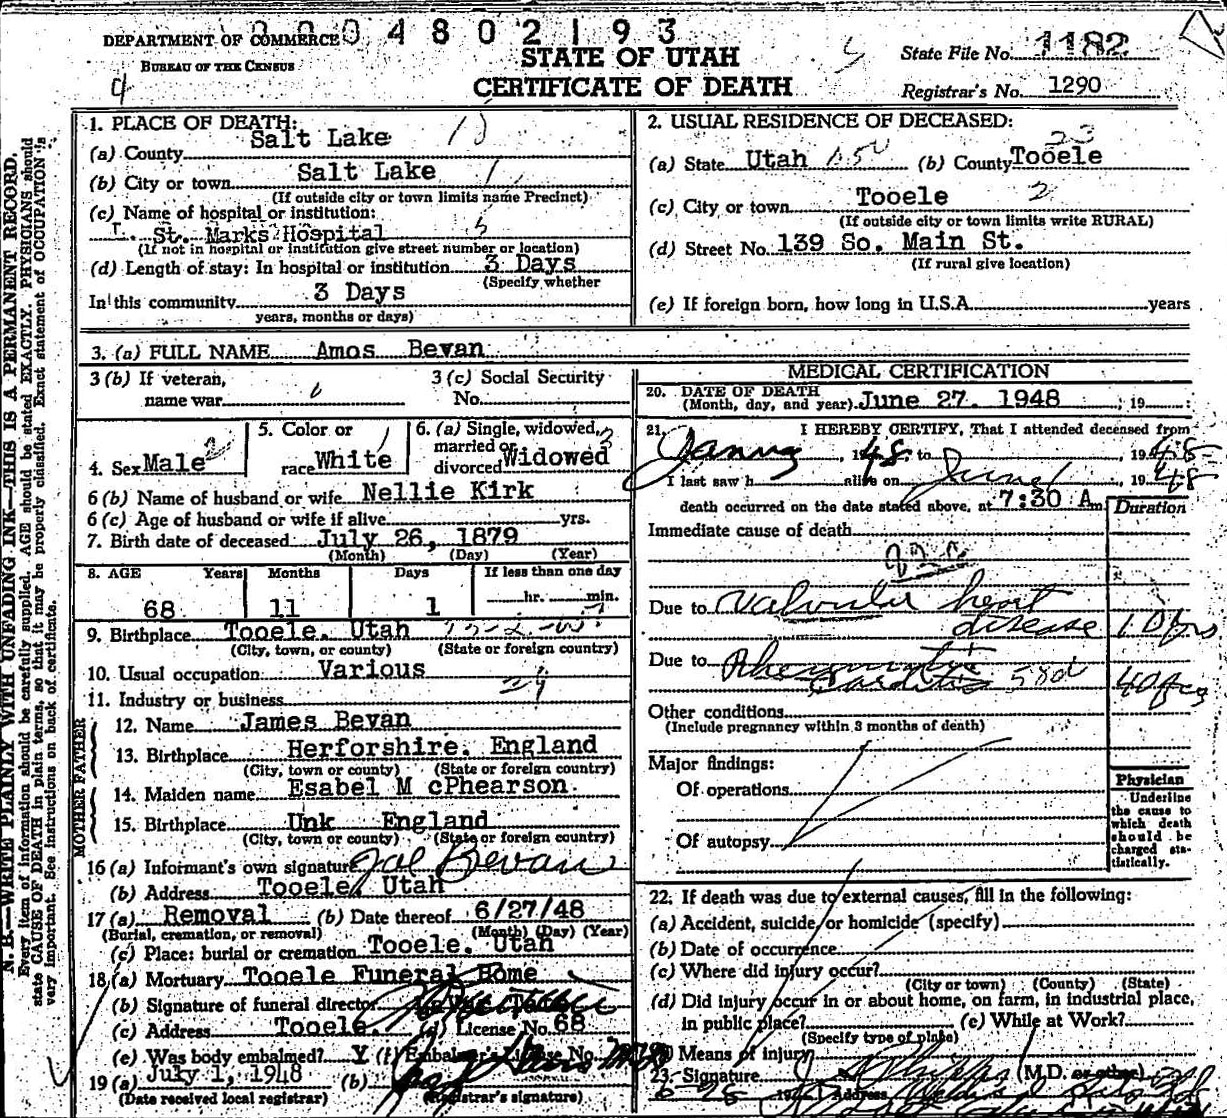 DEPARTMENT OF COMMERCE
BUREAU OF THE CENSUS
4802193
STATE OF UTAH
CERTIFICATE OF DEATH
State File No. 1182
Registrar's No. 1290
N. B.—WRITE PLAINLY WITH UNFADING INK—THIS IS A PERMANENT RECORD.
Every item of information should be carefully supplied. AGE should be stated EXACTLY. PHYSICIANS should
state CAUSE OF DEATH in plain terms, so that it may be properly classified. Exact statement of OCCUPATION is
very important. See instructions on back of certificate.
1. PLACE OF DEATH:
(a) County Salt Lake
(b) City or town Salt Lake
(If outside city or town limits name Precinct)
(c) Name of hospital or institution:
St. Marks Hospital
(If not in hospital or institution give street number or location)
(d) Length of stay: In hospital or institution 3 Days
(Specify whether
In this community 3 Days
years, months or days)
2. USUAL RESIDENCE OF DECEASED:
(a) State Utah (b) County Tooele
(c) City or town Tooele
(If outside city or town limits write RURAL)
(d) Street No. 139 So. Main St.
(If rural give location)
(e) If foreign born, how long in U.S.A. years
3. (a) FULL NAME Amos Bevan
3 (b) If veteran,
name war
3 (c) Social Security
No.
4. Sex Male
5. Color or
race White
6. (a) Single, widowed,
married or
divorced Widowed
6 (b) Name of husband or wife Nellie Kirk
6 (c) Age of husband or wife if alive yrs.
7. Birth date of deceased July 26, 1879
(Month) (Day) (Year)
8. AGE Years Months Days If less than one day
68 11 1 hr. min.
9. Birthplace Tooele, Utah
(City, town, or county) (State or foreign country)
10. Usual occupation Various
11. Industry or business
FATHER
12. Name James Bevan
13. Birthplace Herforshire. England
(City, town or county) (State or foreign country)
MOTHER
14. Maiden name Esabel M cPhearson
15. Birthplace Unk England
(City, town or county) (State or foreign country)
16 (a) Informant's own signature Joe Bevan
(b) Address Tooele, Utah
17 (a) Removal (b) Date thereof 6/27/48
(Burial, cremation, or removal) (Month) (Day) (Year)
(c) Place: burial or cremation Tooele. Utah
18 (a) Mortuary Tooele Funeral Home
(b) Signature of funeral director
(c) Address Tooele. (d) License No. 68
(e) Was body embalmed? Y (f) Embalmer's License No.
19 (a) July 1, 1948 (b)
(Date received local registrar) (Registrar's signature)
MEDICAL CERTIFICATION
20. DATE OF DEATH
(Month, day, and year) June 27. 1948 ; 19
21. I HEREBY CERTIFY, That I attended deceased from
, 1948 to , 1948
I last saw h alive on June , 1948
death occurred on the date stated above, at 7:30 A m.
Duration
Immediate cause of death
Due to Valvular heart
disease 10 yrs
Due to Rheumatic
Carditis 58d 40 yrs
Other conditions
(Include pregnancy within 3 months of death)
Major findings:
Of operations
Of autopsy
Physician
Underline
the cause to
which death
should be
charged sta-
tistically.
22. If death was due to external causes, fill in the following:
(a) Accident, suicide or homicide (specify)
(b) Date of occurrence
(c) Where did injury occur?
(City or town) (County) (State)
(d) Did injury occur in or about home, on farm, in industrial place,
in public place? (e) While at Work?
(Specify type of place)
Means of injury
23. Signature (M.D. or other)
Address